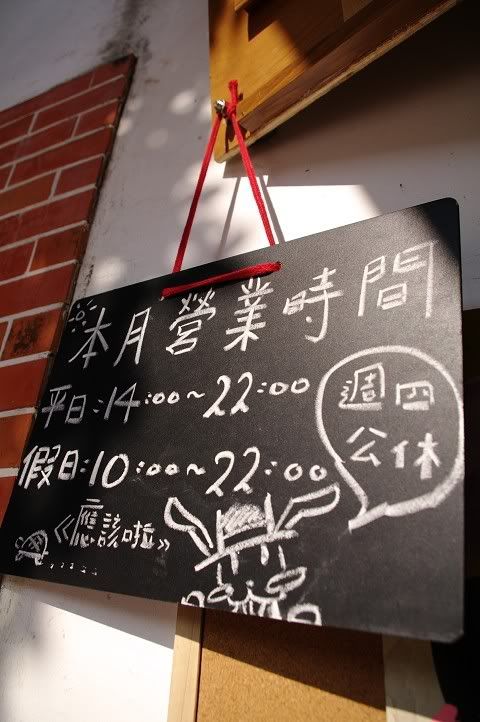 本月營業時間
平日:14:00~22:00
假日:10:00~22:00
《應該啦》
週四
公休